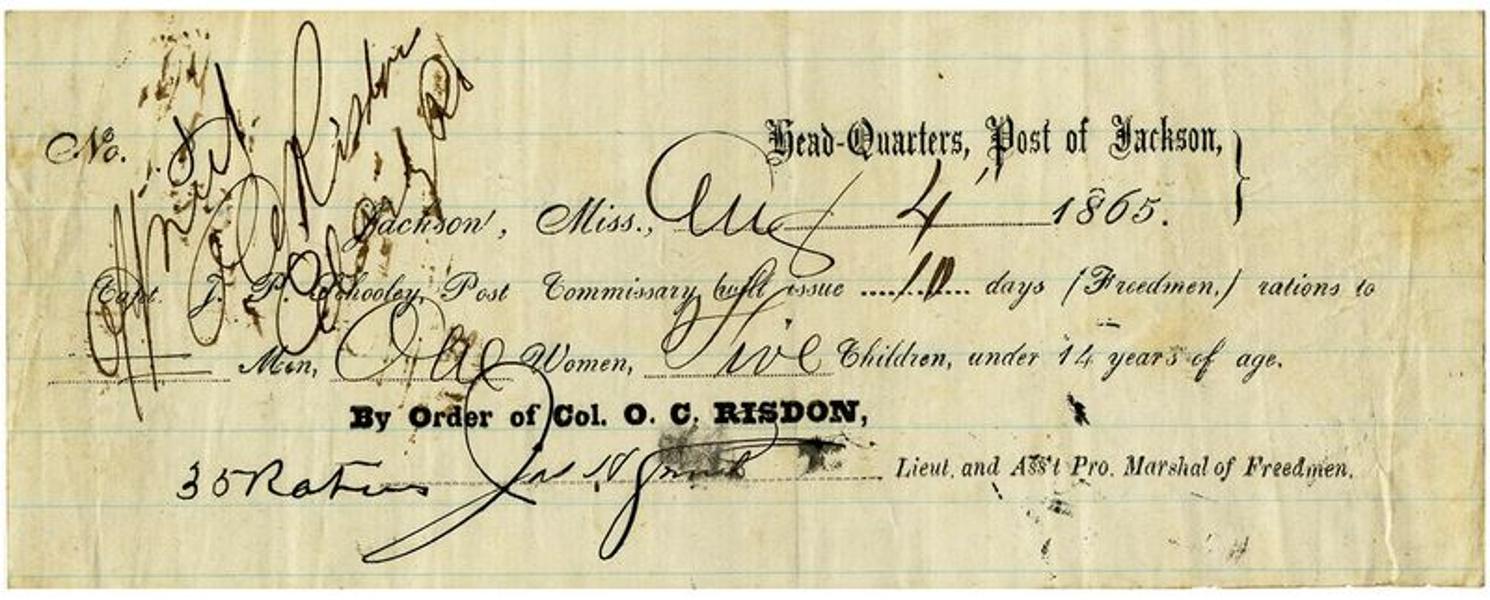 No.
Head-Quarters, Post of Jackson,
Jackson, Miss., Aug 4 1865.
Capt. J. P. Schooley, Post Commissary will issue 10 days (Freedmen,) rations to
Men, One Women, Five Children, under 14 years of age.
By Order of Col. O. C. RISDON,
35 Rations Lieut. and Ass't Pro. Marshal of Freedmen.
O C Risdon
Col